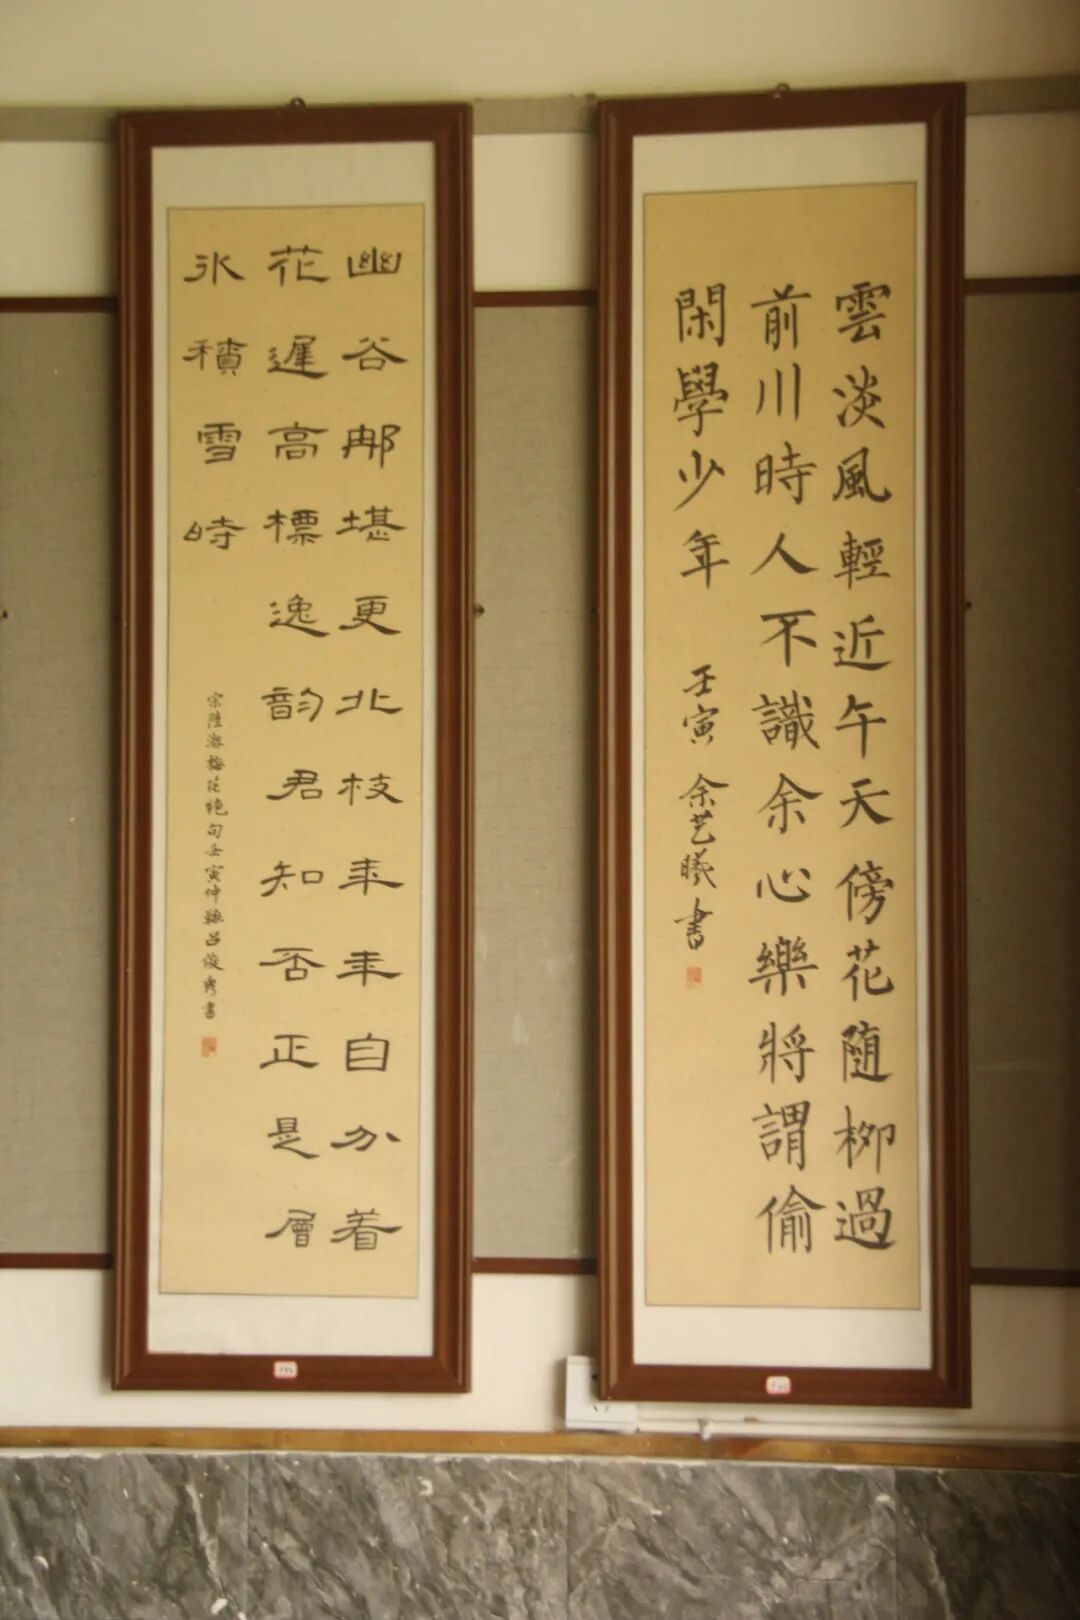 雲淡風輕近午天傍花随柳過
前川時人不識余心樂將謂偷
閑學少年
壬寅 余艺曦書
幽谷那堪更北枝年年自分着
花遲高標逸韵君知否正是層
冰積雪時
宗陸游梅花绝句壬寅仲 吕俊秀書